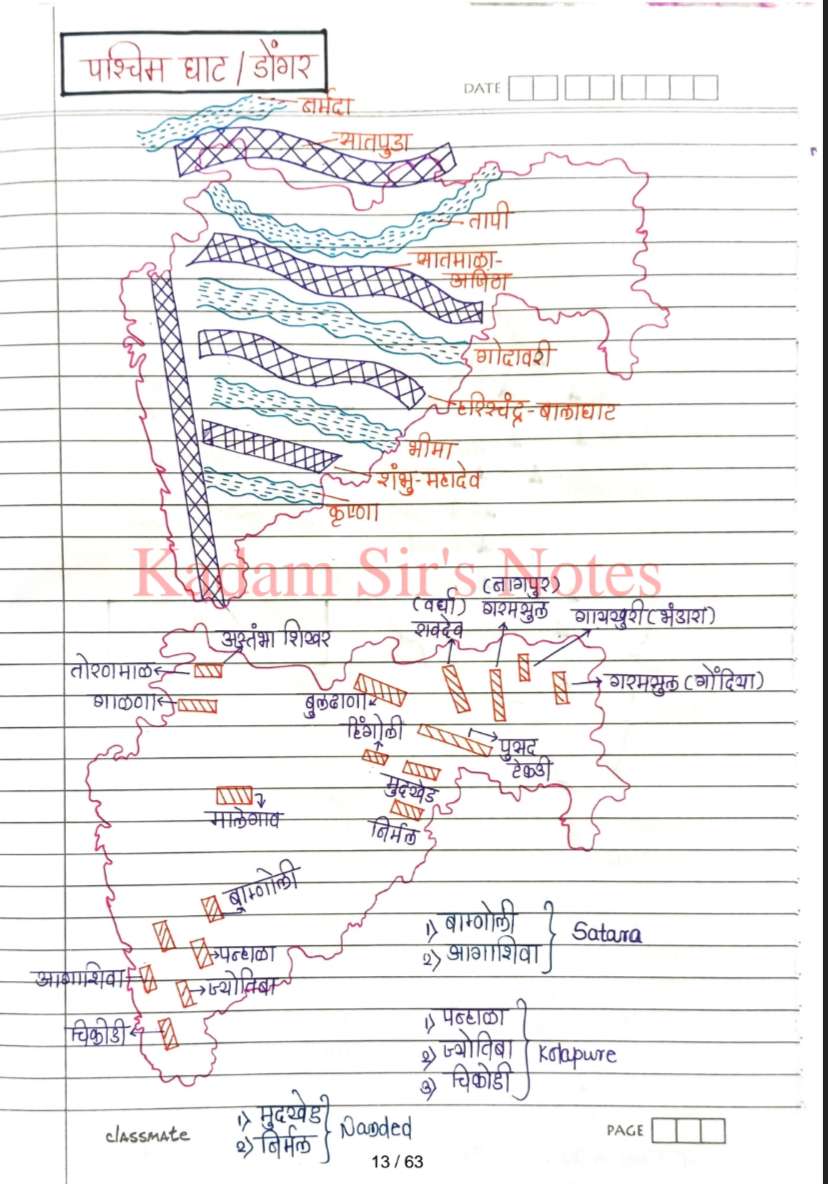 पश्चिम घाट / डोंगर
DATE
नर्मदा
सातपुडा
तापी
सातमाळा-
अजिंठा
गोदावरी
हरिश्चंद्र-बालाघाट
भीमा
शंभु-महादेव
कृष्णा
Kadam Sir's Notes
(वर्धा)
रावदेव
(नागपुर)
गरमसुल
गायखुरी (भंडारा)
अस्तंभा शिखर
तोरणमाळ
गाळणा
बुलढाणा
गरमसुल (गोंदिया)
हिंगोली
पुसद
टेकडी
मुदखेड
मालेगाव
निर्मल
बामणोली
पन्हाळा
आगाशिवा
ज्योतिबा
चिकोडी
1) बामणोली
2) आगाशिवा
Satara
1) पन्हाळा
2) ज्योतिबा
3) चिकोडी
Kolapure
1) मुदखेड
2) निर्मल
Nanded
classmate
PAGE
13 / 63